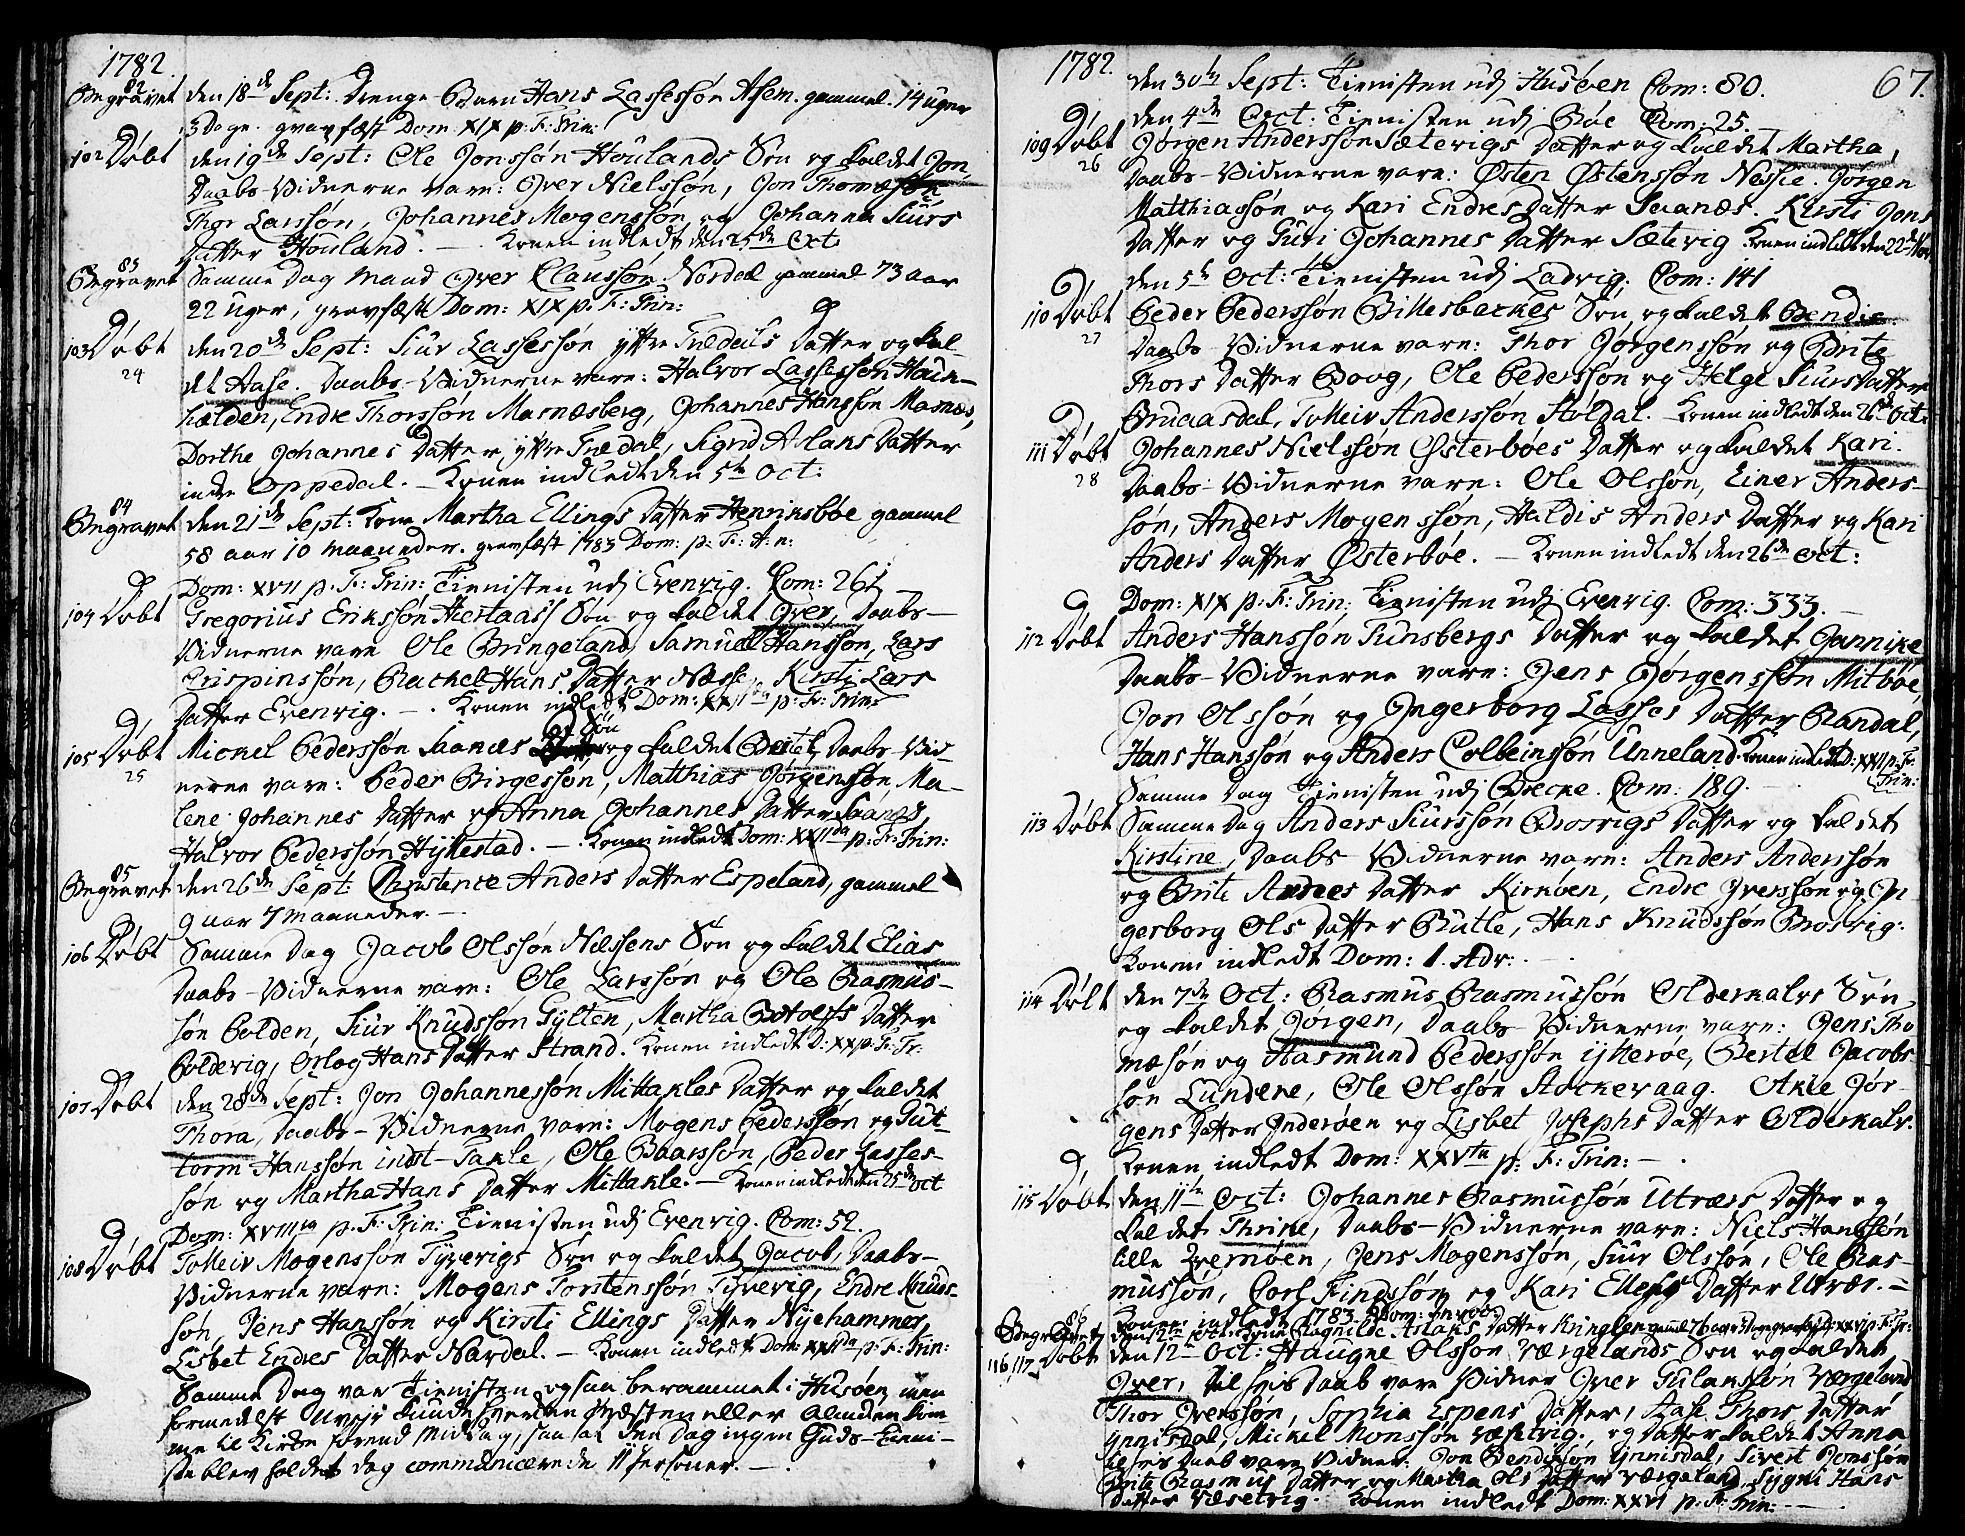 1782.
82
Begravet den 18de Sept: Drenge Barn Hans Lassessøn Asem. gammel. 14 uger
3 Dage. gravfæst Dom: XIX p: F: Trin:
102 Døbt den 19de Sept: Ole Jonssøn Houlands Søn og kaldet Jon,
Daabs-Vidnerne vare: Iver Nielssøn, Jon Thomæsøn
Thor Larssøn, Johannes Mogenssøn og Johanna Siurs
Datter Houland. — . Konen indledt den 25de Oct:
83
Begravet Samme Dag Mand Iver Claussøn Nordal gammel 73 aar
22 uger, gravfæst Dom: XIX p: F: Trin:
103 Døbt den 20de Sept: Siur Lassessøn yttre Tredals Datter og kal-
24
det Aase. Daabs-Vidnerne vare: Halvor Lassessøn
hælden, Endre Thorssøn Masnæsberg, Johannes Hanssøn Masnæs,
Dorthe Johannes Datter yttre Tredal, Sigrid Aslaks Datter
indre Oppedal. — Konen indledt den 5te Oct:
84
Begravet den 21de Sept: Kone Martha Ellings Datter Henriksbøe gammel
58 aar 10 maaneder. gravfæst 1783 Dom: p: F: A: n:
Dom: XVII p: F: Trin: Tienisten udj Evenvig. Com: 261
104 Døbt Gregorius Erikssøn Hiertaass Søn og kaldet Iver, Daabs-
Vidnerne vare Ole Bringeland, Samuel Hanssøn, Lars
Crispinssøn, Rachel Hans Datter Næsse, Kirsti Lars
Datter Evenvig. — . Konen indledt Dom: p: F: Trin:
Søn
105 Døbt Mickel Pederssøn Saanæs og kaldet Bertel, Daabs-Vid-
25
nerne vare: Peder Birgessøn, Matthias Jørgenssøn, Ma-
lene Johannes Datter og Anna Johannes Datter Saanæs,
Halvor Pederssøn Hyllestad. — . Konen indledt Dom: XXIIda p: F: Trin:
85
Begravet den 26de Sept: Christence Anders Datter Espeland, gammel
9 aar 7 maaneder. —
106 Døbt Samme Dag Jacob Olssøn Næssens Søn og kaldet Elias
Daabs-Vidnerne vare: Ole Larssøn og Ole Rasmus-
søn Polden, Siur Knudssøn Gylten, Martha Datter
Poldevig, Orlog Hans Datter Strand. Konen indledt D: XX p: F: Tr:
107 Døbt den 28de Sept: Jon Johannessøn Mittakles Datter og kaldet
Thora, Daabs-Vidnerne vare: Mogens Pederssøn og Gut-
torm Hanssøn indst-Takle, Ole Baarssøn, Peder Lasses-
søn og Martha Hans Datter Mittakle. — Konen indledt den 25de Oct
Dom: XVIIIva p: F: Trin: Tienisten udj Evenvig. Com: 52.
108 Døbt Tolleiv Mogenssøn Tyverigs Søn og kaldet Jacob, Daabs-
Vidnerne vare: Mogens Torstenssøn Tyvevig, Endre Knuds-
søn, Jens Hanssøn og Kirsti Ellings Datter Nyehammer,
Lisbet Endres Datter Nardal. — Konen indledt Dom: XXIIda p: F: Trin:
Samme Dag var Tienisten ogsaa berammet i Husøen, men
formedelst Uvejr kunde hverken Præsten eller Almuen kom-
me til Kirke førend Middag, saa at den Dag ingen Guds-Tieni-
ste blev holdet dog communicerede 11 Personer. — .
1782.
67.
den 30te Sept: Tienisten udj Husøen Com: 80.
den 4de Oct: Tienisten udj Bøe Com: 25.
109 Døbt Jørgen Anderssøn Sæterigs Datter og kaldet Martha,
26
Daabs-Vidnerne vare: Østen Østenssøn Nessie, Jørgen
Matthiassøn og Kari Endres Datter Saanæs. Kirsti Jons
Datter og Guri Johannes Datter Sætevig Konen indledt den 22de Nov
den 5te Oct: Tienisten udj Ladvig. Com: 141
110 Døbt Peder Pederssøn Billesbackes Søn og kaldet Bendix.
27
Daabs-Vidnerne vare: Thor Jørgenssøn og Brite
Thors Datter Boug, Ole Pederssøn og Helge Siurs Datter
Bruaasdal, Tolleiv Anderssøn Støldal. Konen indledt den 26de Oct:
111 Døbt Johannes Nielssøn Østerbøes Datter og kaldet Kari.
28
Daabs-Vidnerne vare: Ole Olssøn, Einer Anders-
søn, Anders Mogenssøn, Haldis Anders Datter og Kari
Anders Datter Østerbøe. — Konen indledt den 26de Oct:
Dom: XIX p: F: Trin: Tienisten udj Evenvig. Com: 333. —
112 Døbt Anders Hanssøn Tunsbergs Datter og kaldet Jannike
Daabs-Vidnerne vare: Jens Jørgenssøn Mitbøe,
Jon Olssøn og Ingerborg Lasses Datter Randal,
Hans Hanssøn og Anders Colbeinssøn Unneland. Konen indledt D: XXII p: F:
Trin:
Samme Dag Tienisten udj Brecke. Com: 189. —
113 Døbt Samme Dag Anders Siurssøn Brosvigs Datter og kaldet
Kirstine, Daabs Vidnerne vare: Anders Anderssøn
og Brite Andres Datter Kirkøen, Endre Iverssøn og In
gerborg Ols Datter Rutle, Hans Knudssøn Brosvig:
Konen indledt Dom: 1. Adv: —
114 Døbt den 7de Oct: Rasmus Rasmussøn Olderkalvs Søn
og kaldet Jørgen, Daabs-Vidnerne vare: Jens Tho
mæsøn og Aasmund Pederssøn ytterøe, Bertel Jacobs
søn Lundene, Ole Olssøn Stockevaag. Anne Jør-
gens Datter Inderøen og Lisbet Josephs Datter Olderkalv.
Konen indledt Dom: XXVta p: F: Trin: — .
115 Døbt den 11te Oct: Johannes Rasmussøn Utværs Datter og
kaldet Thrine, Daabs-Vidnerne vare: Niels Hanssøn
lille Qvernøen, Jens Mogenssøn, Siur Olssøn, Ole Ras-
mussøn, Carl Findssøn og Kari Ellens Datter Utvær. —
Konen indledt 1783 Dom:
86
Begravet den 12te Oct: Ragnilde Aslaks Datter Kringlen gammel 76 aar XXVI p: F: Tr:
116, 117 Døbt den 12te Oct: Haugne Olssøn Værgelands Søn og kaldet
Iver, til hvis Daab vare Vidner Iver Gulakssøn Værgeland
Thor Iverssøn, Sophia Espens Datter, Aase Thors Datter
Ynnisdal, Mickel Monssøn Væsetvig. og Datter kaldet Anna
Daab vare Vidner: Jon Bendixsøn Ynnisdal, Sivert Jonssøn
Brite Rasmus Datter og Martha Ols Datter Værgeland, Sygni Hans
Datter Væsetvig. Konen indledt Dom: XXVI p: F: Trin: —